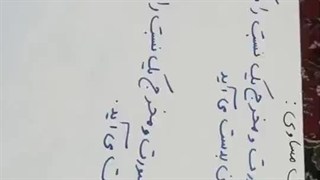 مساوی :
و مخرج یک نسبت را
بدست می آید
صورت و مخرج یک نسبت را
می آید.